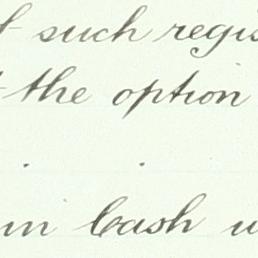 such regis
the option
in Cash